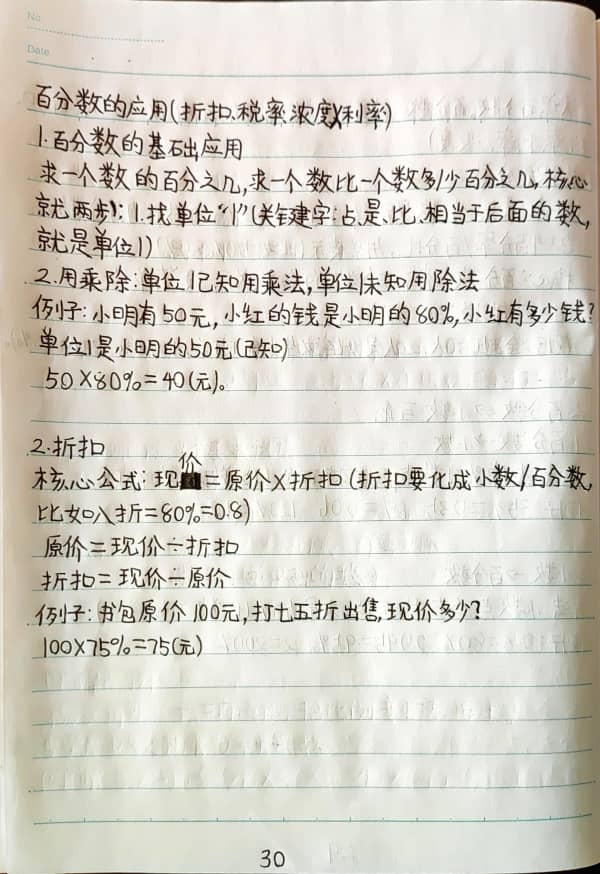 No.
Date
百分数的应用(折扣、税率、浓度、利率)
1.百分数的基础应用
求一个数的百分之几,求一个数比一个数多/少百分之几,核心
就两步:1.找单位“1”(关键字:占、是、比、相当于后面的数,
就是单位1)
2.用乘除:单位1已知用乘法,单位1未知用除法
例子:小明有50元,小红的钱是小明的80%,小红有多少钱?
单位1是小明的50元(已知)
50×80%=40(元)。
2.折扣
核心公式:现价=原价×折扣(折扣要化成小数/百分数,
比如八折=80%=0.8)
原价=现价÷折扣
折扣=现价÷原价
例子:书包原价100元,打七五折出售,现价多少?
100×75%=75(元)
30